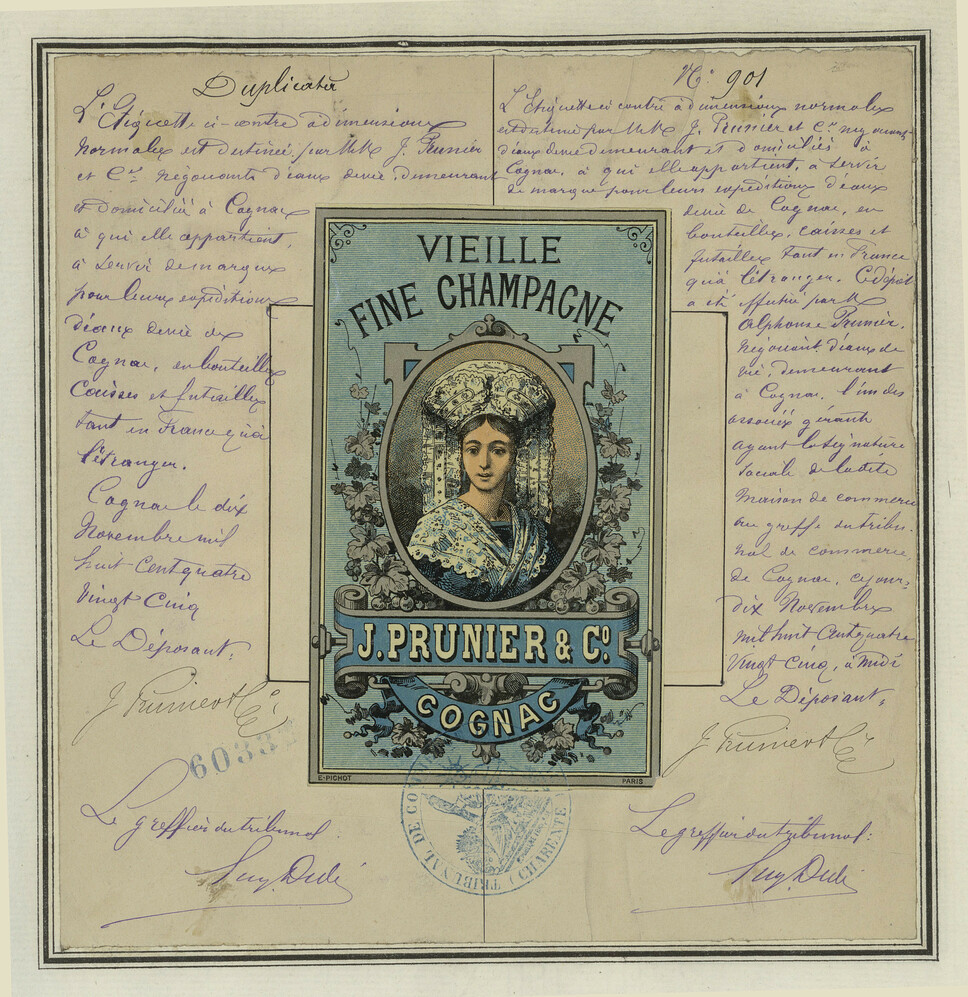 Duplicata
L'Etiquette ci-contre à dimensions
normales est destinée par MM J. Prunier
et Cie négociants d'eaux de vie, demeurant
et domiciliés à Cognac
à qui elle appartient,
à servir de marque
pour leurs expéditions
d'eaux de vie de
Cognac, en bouteilles
caisses et futailles
tant en France qu'à
l'étranger.
Cognac le dix
Novembre mil
huit cent quatre
vingt cinq
Le Déposant:
J. Prunier & Cie
60382
Le greffier du tribunal
No 901
L'Etiquette ci contre à dimensions normales
est destinée par MM. J. Prunier et Cie négociants
d'eaux de vie demeurant et domiciliés à
Cognac, à qui elle appartient, à servir
de marque pour leurs expéditions d'eaux
de vie de Cognac, en
bouteilles, caisses et
futailles tant en France
qu'à l'étranger. Ce dépôt
a été effectué par M
Alphonse Prunier,
négociant d'eaux de
vie, demeurant
à Cognac, l'un des
associés gérants
ayant la signature
sociale de la dite
maison de commerce
au greffe du tribu-
nal de commerce
de Cognac, ce jour-
dix Novembre
mil huit cent quatre
vingt cinq, à midi
Le Déposant,
J. Prunier & Cie
Le greffier du tribunal:
VIEILLE
FINE CHAMPAGNE
J. PRUNIER & Co.
COGNAC
E-PICHOT
PARIS
TRIBUNAL DE
(CHARENTE)